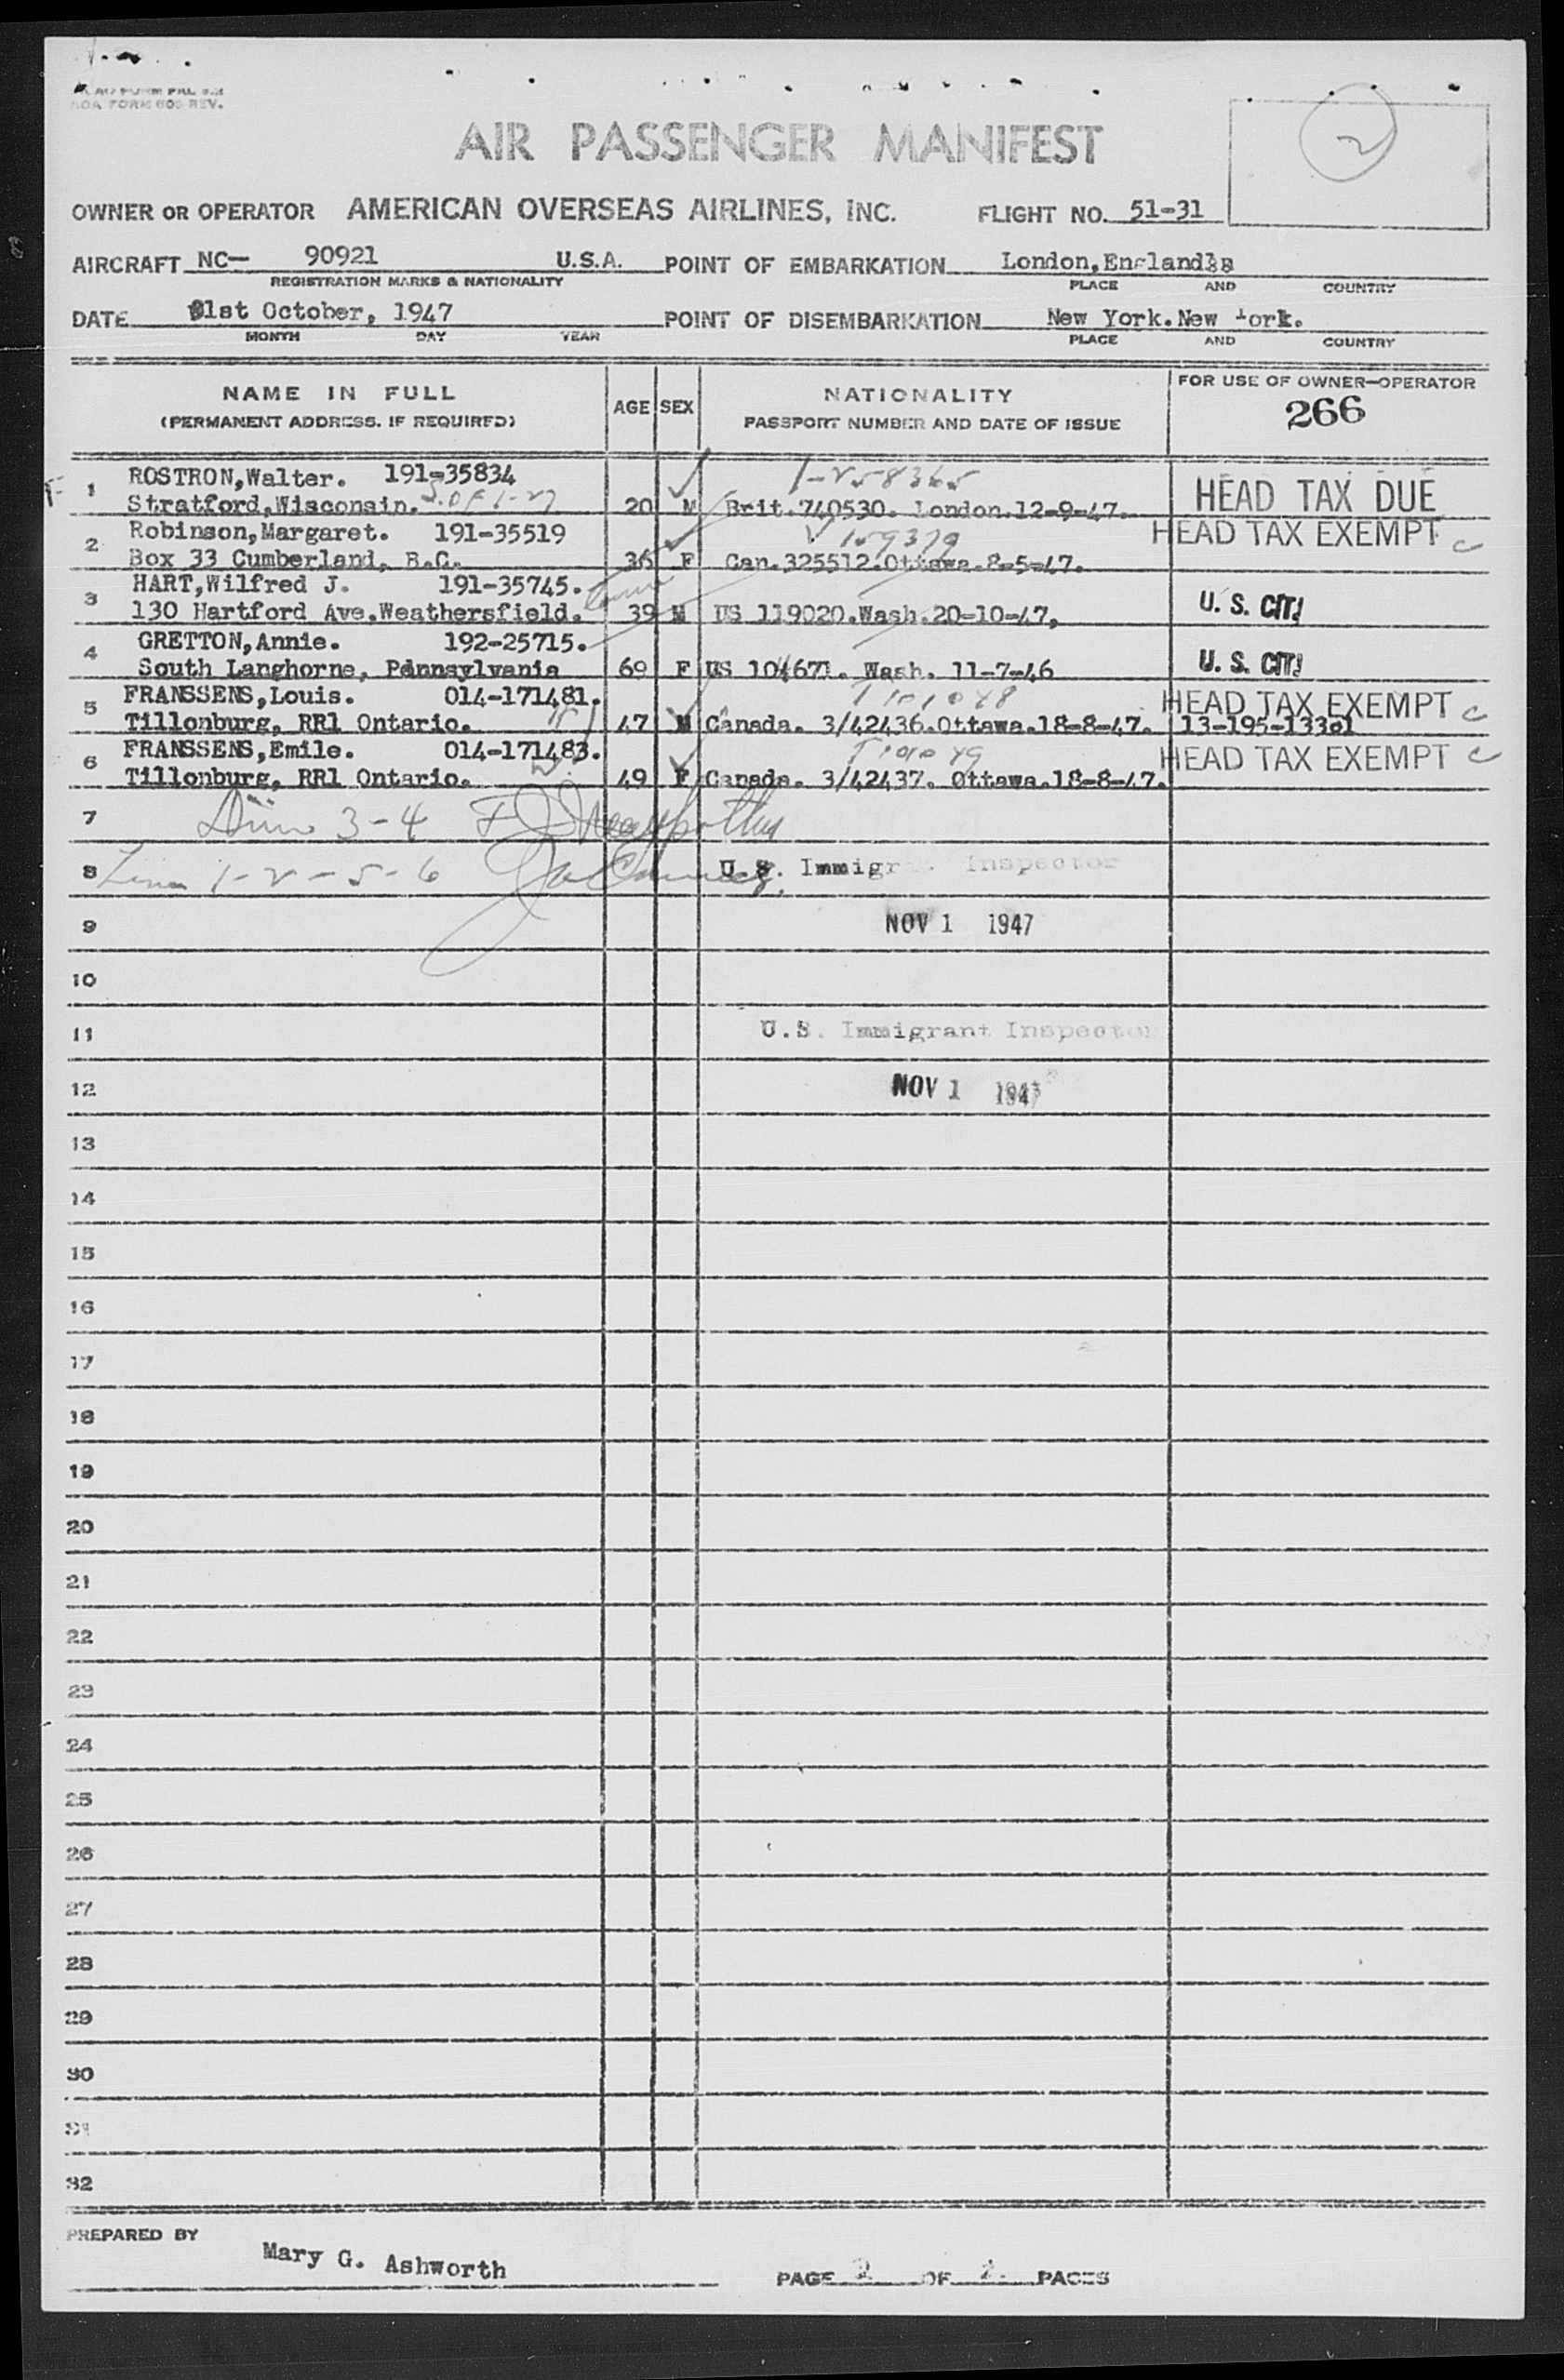 AOA FORM 603 REV.
2
AIR PASSENGER MANIFEST
OWNER OR OPERATOR AMERICAN OVERSEAS AIRLINES, INC. FLIGHT NO. 51-31
AIRCRAFT NC- 90921 U.S.A. POINT OF EMBARKATION London,England
REGISTRATION MARKS & NATIONALITY PLACE AND COUNTRY
DATE 31st October, 1947 POINT OF DISEMBARKATION New York.New York.
MONTH DAY YEAR PLACE AND COUNTRY
NAME IN FULL AGE SEX NATIONALITY FOR USE OF OWNER-OPERATOR
(PERMANENT ADDRESS. IF REQUIRED) PASSPORT NUMBER AND DATE OF ISSUE 266
ROSTRON,Walter. 191-35834 1-258365
1 Stratford,Wisconsin. 20 M Brit.740530. London.12-9-47. HEAD TAX DUE
Robinson,Margaret. 191-35519 159379 HEAD TAX EXEMPT c
2 Box 33 Cumberland, B.C. 36 F Can.325512.Ottawa.8-5-47.
HART,Wilfred J. 191-35745.
3 130 Hartford Ave.Weathersfield. 39 M US 119020.Wash.20-10-47. U. S. CIT.
GRETTON,Annie. 192-25715.
4 South Langhorne, Pennsylvania 69 F US 104671. Wash. 11-7-46 U. S. CIT.
FRANSSENS,Louis. 014-171481. HEAD TAX EXEMPT c
5 Tillonburg, RR1 Ontario. 47 M Canada. 3/42436.Ottawa.18-8-47. 13-195-1330l
FRANSSENS,Emile. 014-171483. HEAD TAX EXEMPT c
6 Tillonburg, RR1 Ontario. 49 F Canada. 3/42437. Ottawa.18-8-47.
7 3-4
8 1-2-5-6 U.S. Immigr Inspector
9 NOV 1 1947
10
11 U.S. Immigrant Inspector
12 NOV 1 1947
13
14
15
16
17
18
19
20
21
22
23
24
25
26
27
28
29
30
31
32
PREPARED BY Mary G. Ashworth
PAGE 2 OF 2. PAGES